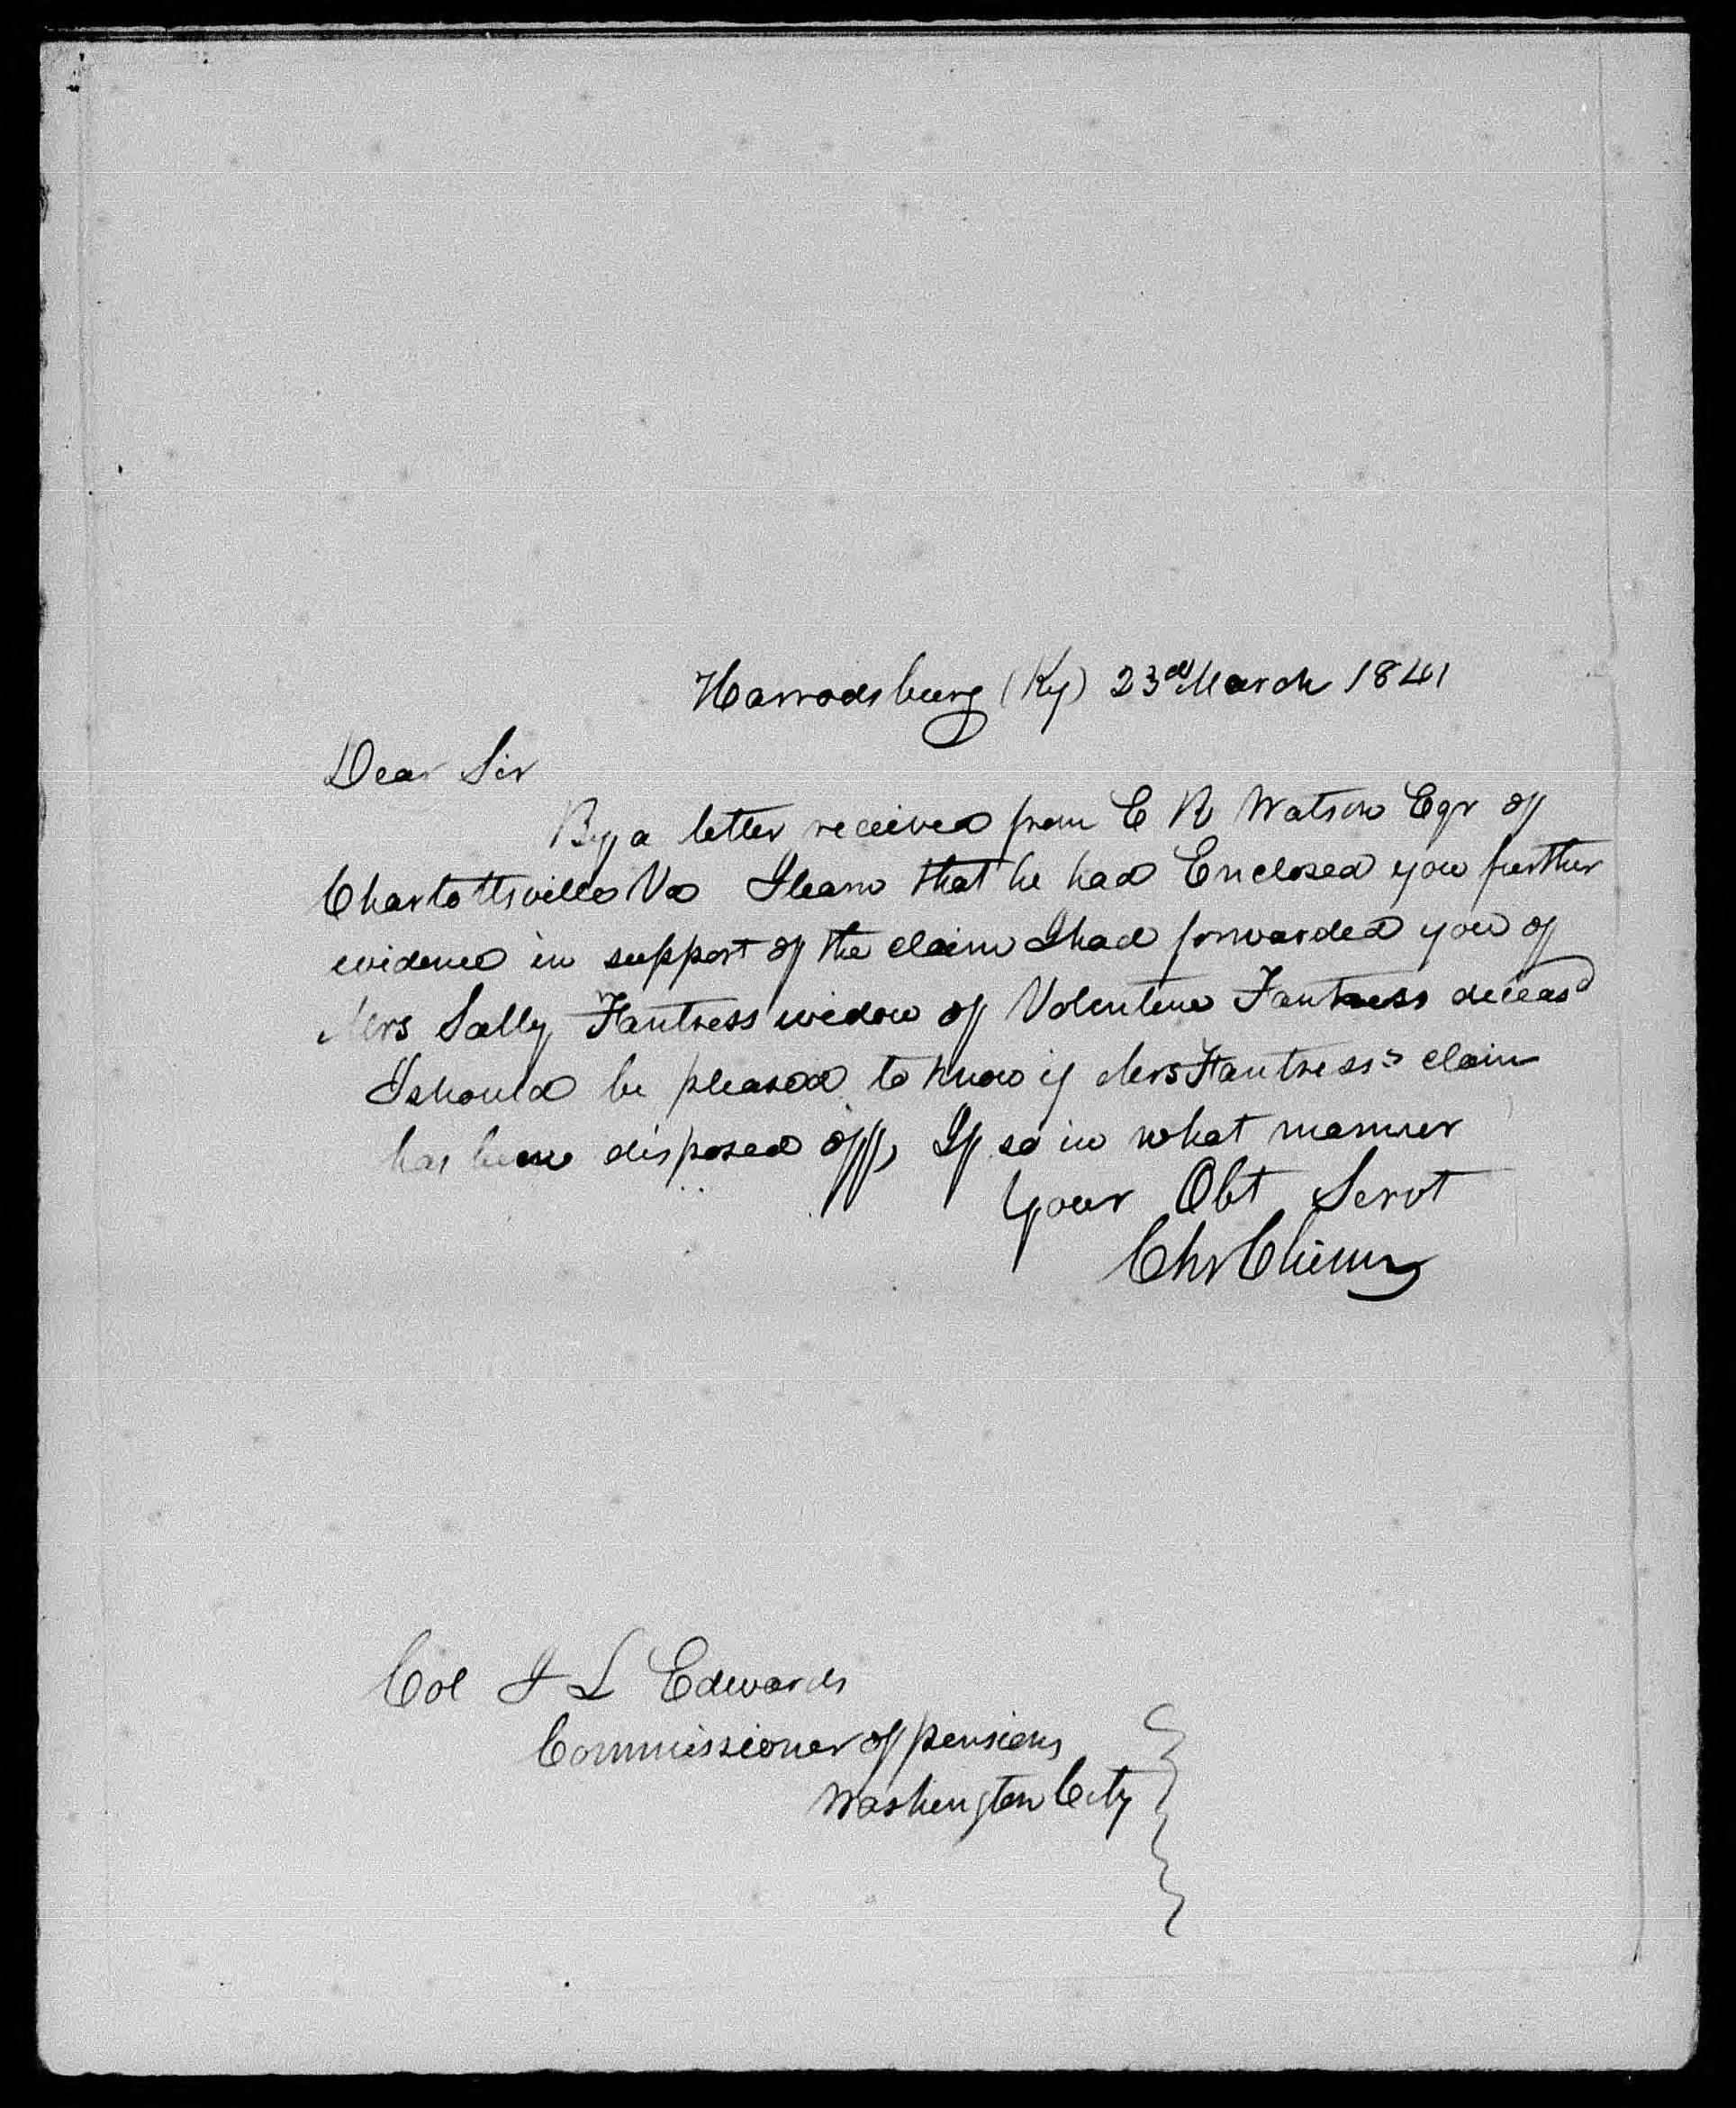 Harrodsburg (Ky) 23d March 1841
Dear Sir
By a letter received from E R Watson Eqr of
Charlottsville Va I learn that he had Enclosed you further
evidence in support of the claim I had forwarded you of
Mrs Sally Fantress widow of Volentine Fantress deceasd
I should be pleased to know if Mrs Fantress's claim
has been disposed off, If so in what manner
Your Obt Servt
Chr Chinn
Col J L Edwards
Commissioner of pensions
Washington City